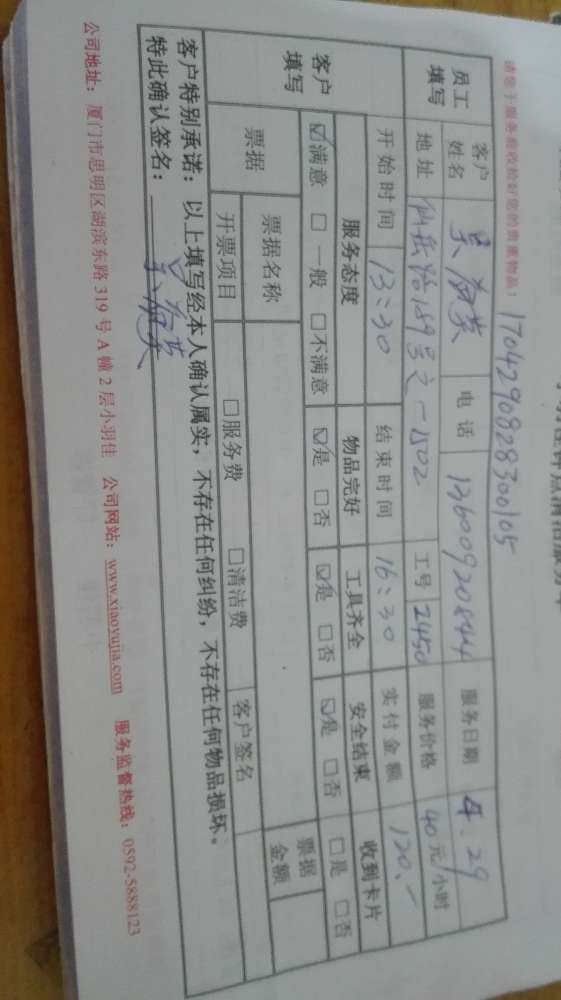 170429082830010​5
请您于服务前收检好您的贵重物品!
员工填写 客户姓名 电话 13600920844 服务日期 4.29
地址 仙岳路189号之一1502 工号 2450 服务价格 40元/小时
开始时间 13:30 结束时间 16:30 实付金额 120.-
客户填写 服务态度 物品完好 工具齐全 安全结束 收到卡片
☑满意 □一般 □不满意 ☑是 □否 ☑是 □否 ☑是 □否 □是 □否
票据 票据名称 票据金额
开票项目 □服务费 □清洁费 客户签名
客户特别承诺:以上填写经本人确认属实,不存在任何纠纷,不存在任何物品损坏。
特此确认签名:
公司地址:厦门市思明区湖滨东路319号A幢2层小羽佳 公司网站:www.xiaoyujia.com 服务监督热线:0592-5888123